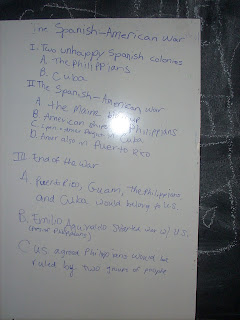 The Spanish-American War
I. Two unhappy Spanish colonies
A. The Philippians
B. Cuba
II. The Spanish-American war
A. the Maine blew up
B. American Philippians
C. Cuba
D. also in Puerto Rico
III. End of the war
A. Puerto Rico, Guam, The Philippians
and Cuba would belong to U.S.
B. Emilio Aguinaldo (started war w/ U.S.)
C U.S. agreed Philippians would be
ruled by two groups of people